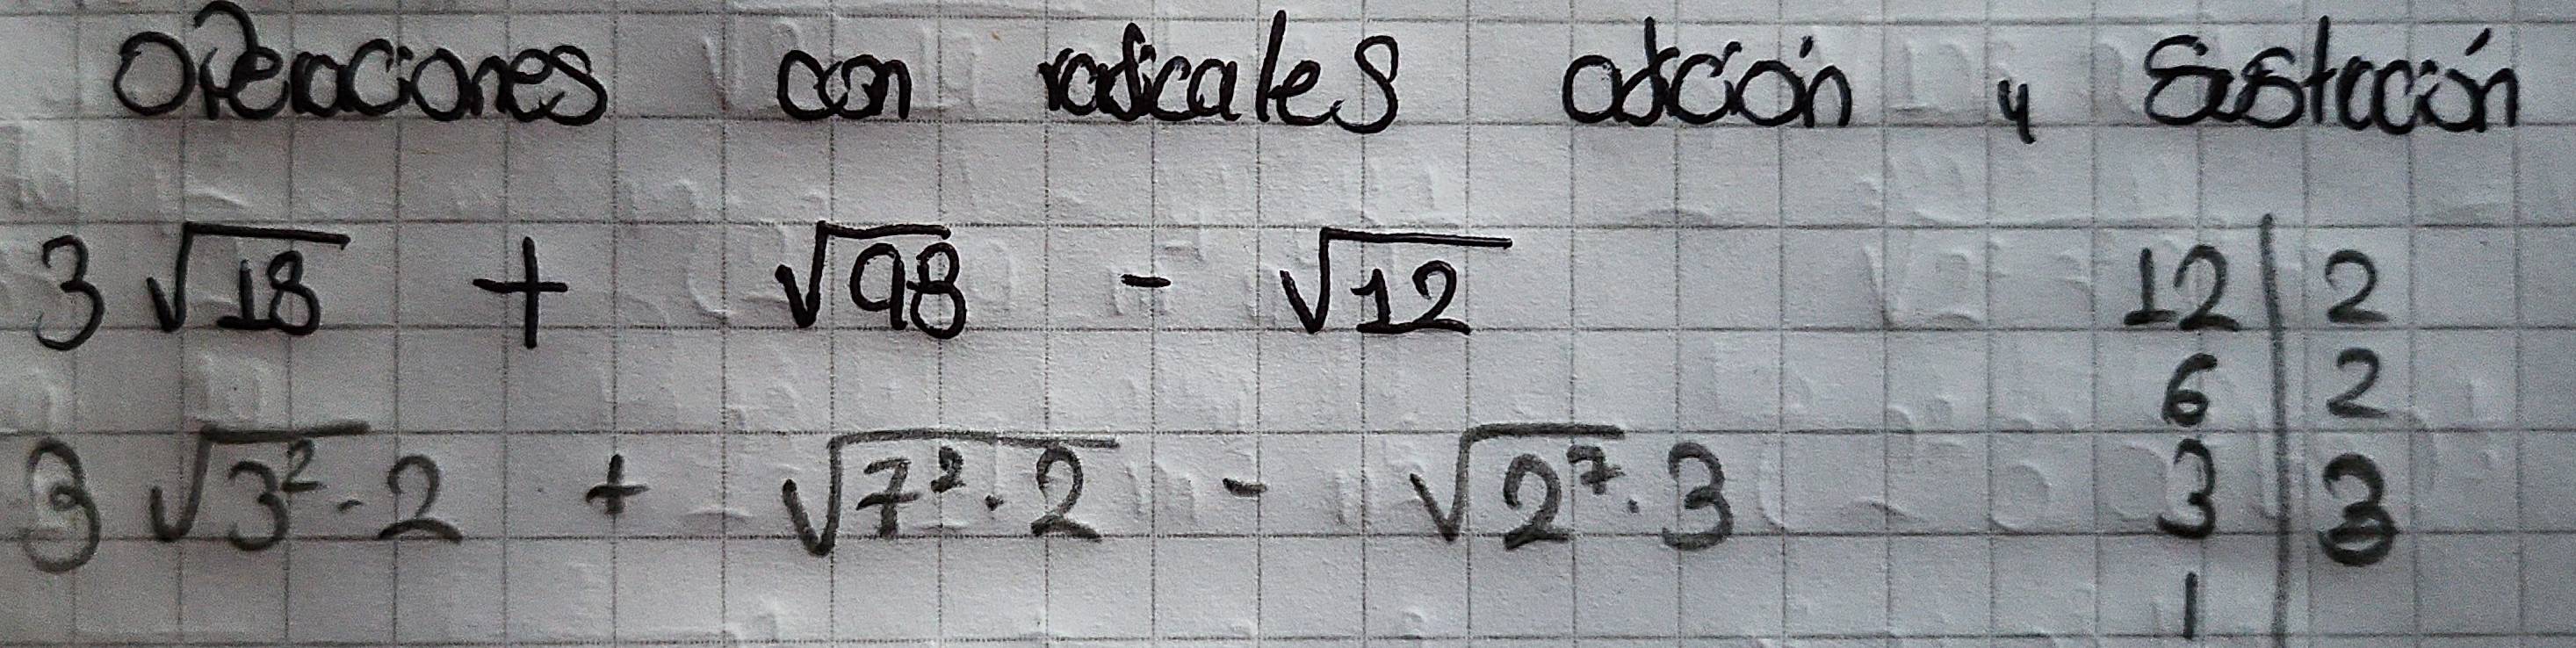 Operaciones con radicales adición y Sustación
3 √18 + √98 - √12
3 √3² · 2 + √7² · 2 - √2⁷ · 3
12 | 2
6 | 2
3 | 3
1 |